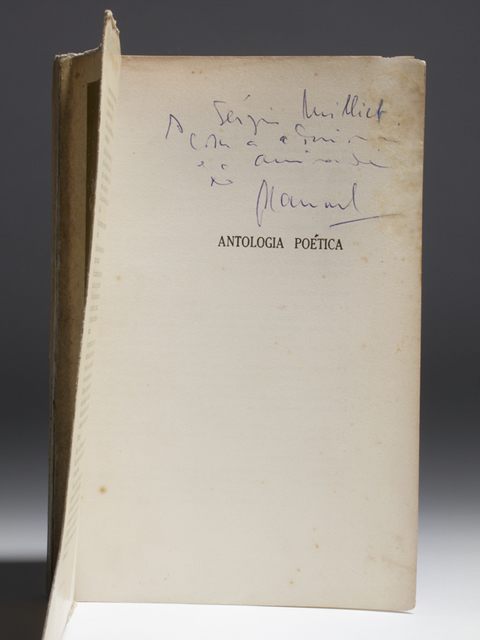 A Sérgio Milliet
com a admiração
e a amizade
do
Manuel
ANTOLOGIA POÉTICA